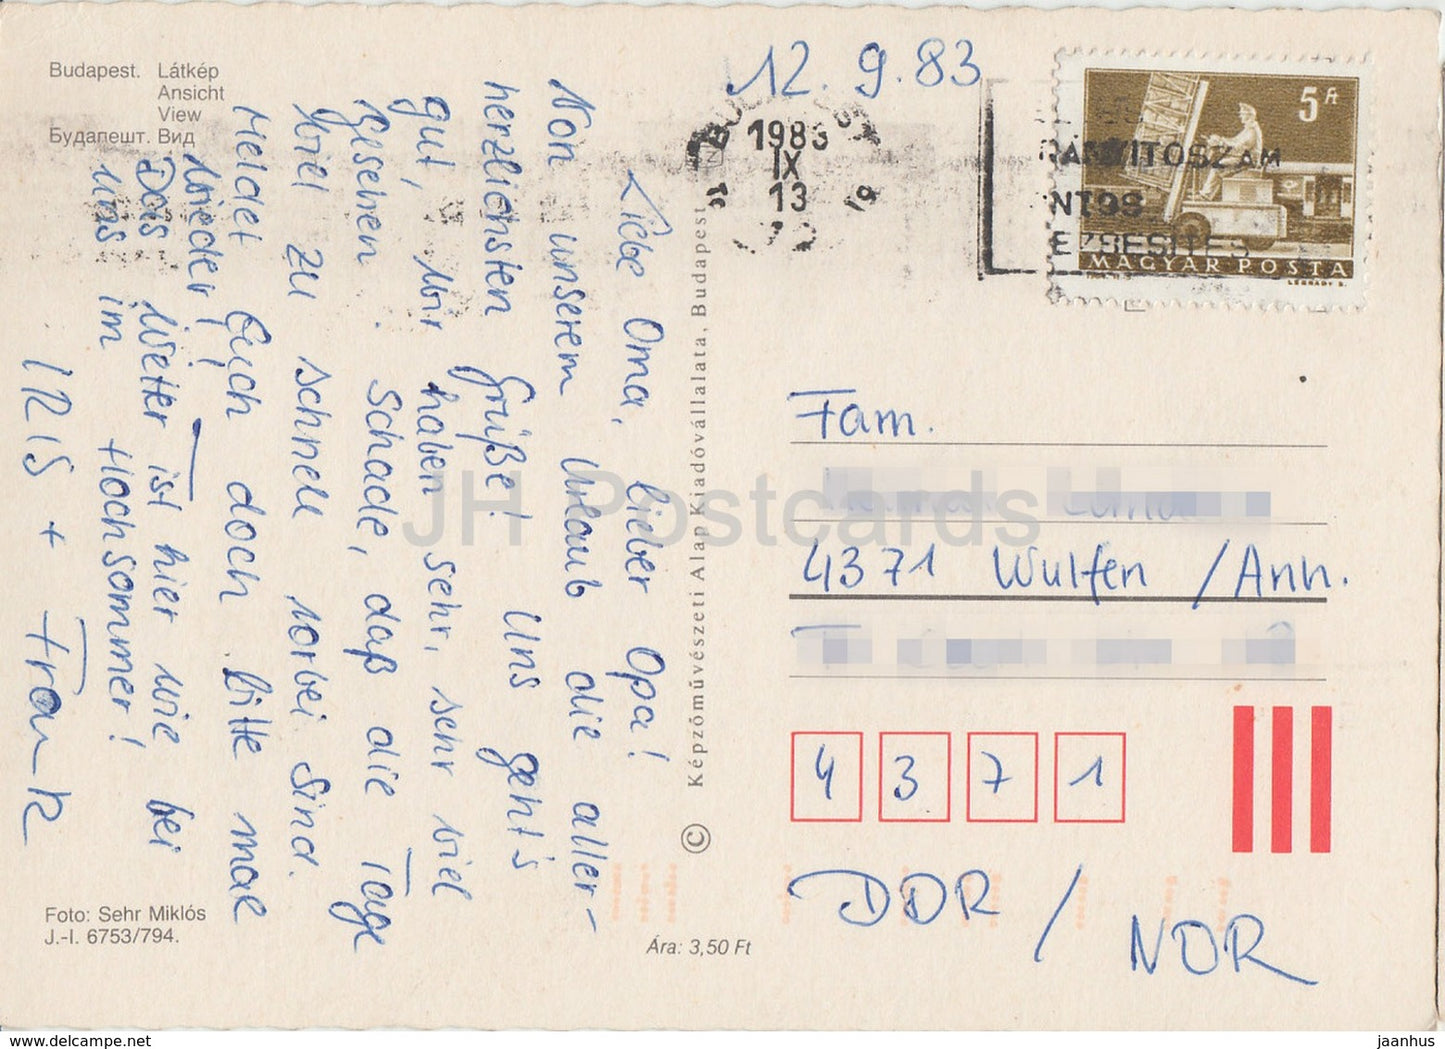 Budapest. Látkép
Ansicht
View
Будапешт. Вид
12. 9. 83
1983
IX
13
19
5 Ft
MAGYAR POSTA
LÉGRÁDY S.
RÁNYITOSZÁM
NTOS
EZBESITÉS
Liebe Oma, lieber Opa!
Von unserem Urlaub die aller-
herzlichsten Grüße! Uns geht's
gut, wir haben sehr, sehr viel
gesehen. Schade, daß die Tage
viel zu schnell vorbei sind.
Meldet Euch doch bitte mal
wieder!
Das Wetter ist hier wie bei
uns im Hochsommer!
IRIS + Frank
© Képzőművészeti Alap Kiadóvállalata, Budapest
Fam.
4371 Wulfen /Anh.
4 3 7 1
DDR / NDR
Foto: Sehr Miklós
J.-I. 6753/794.
Ára: 3,50 Ft
JH Postcards
hippostcard.com
jaanhus